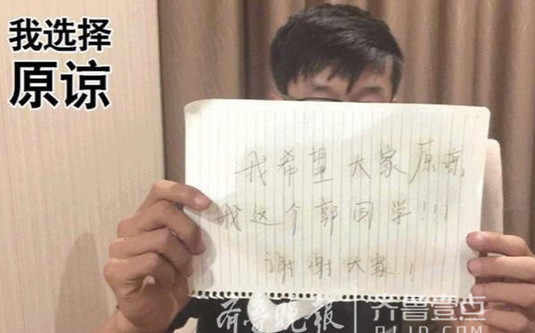 我选择
原谅
我希望大家原谅
我这个郭同学!!!
谢谢大家!
齐鲁晚报
齐鲁壹点